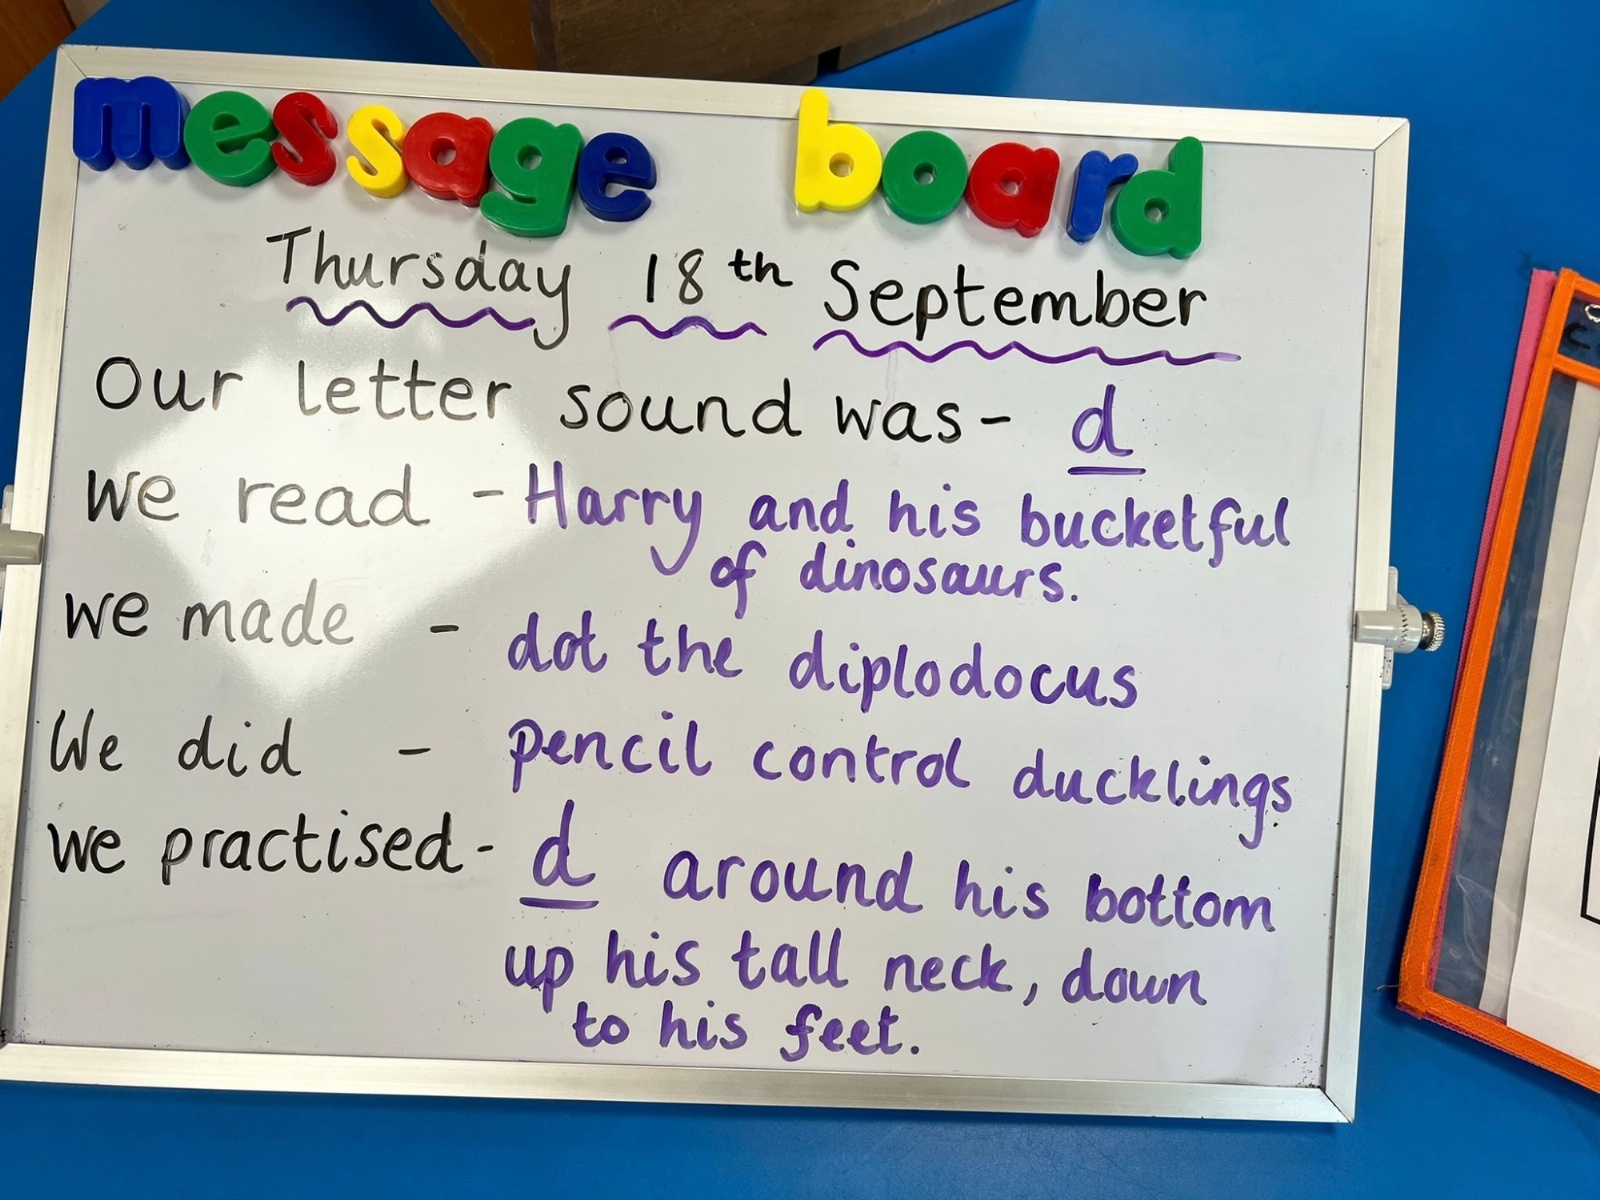 message board
Thursday 18th September
Our letter sound was - d
We read - Harry and his bucketful
of dinosaurs.
We made - dot the diplodocus
We did - pencil control ducklings
We practised - d around his bottom
up his tall neck, down
to his feet.